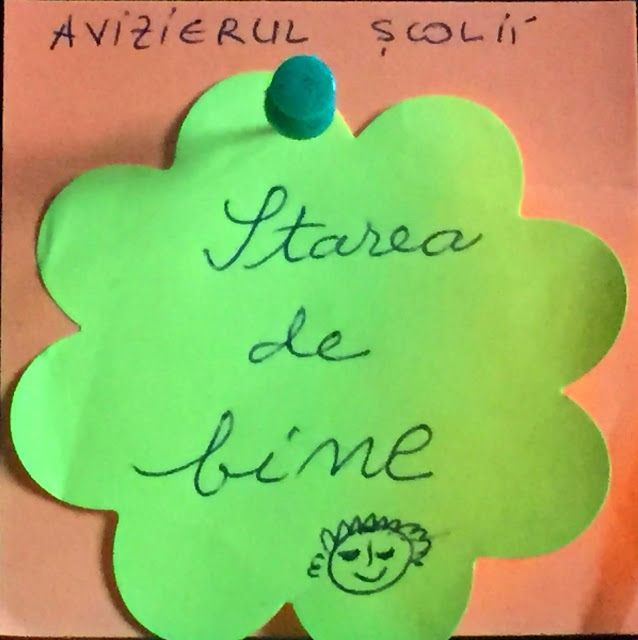 AVIZIERUL ȘCOLII
Starea
de
bine